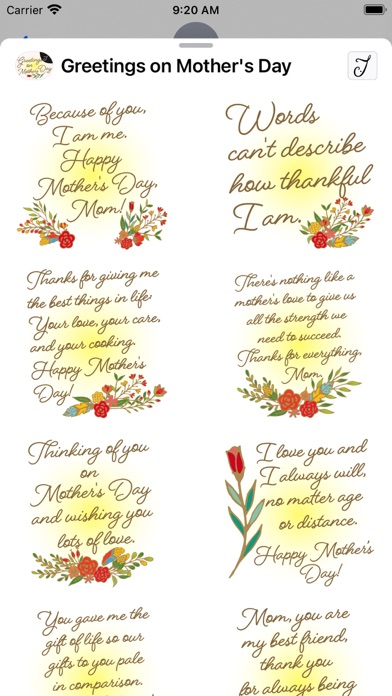 Carrier 9:20 AM
Greetings on Mother's Day
Greetings on Mother's Day
Because of you,
I am me.
Happy
Mother's Day,
Mom!
Words
can't describe
how thankful
I am.
Thanks for giving me
the best things in life:
Your love, your care,
and your cooking.
Happy Mother's
Day!
There's nothing like a
mother's love to give us
all the strength we
need to succeed.
Thanks for everything,
Mom.
Thinking of you
on
Mother's Day
and wishing you
lots of love.
I love you and
I always will,
no matter age
or distance.
Happy Mother's
Day!
You gave me the
gift of life so our
gifts to you pale
in comparison.
Mom, you are
my best friend,
thank you
for always being